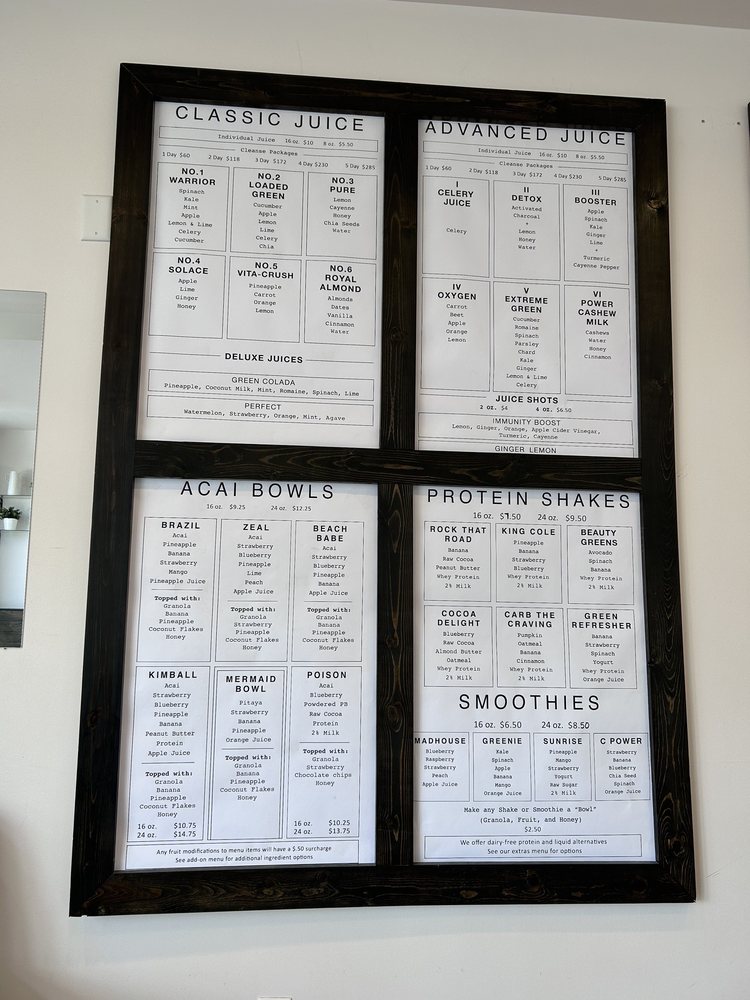 CLASSIC JUICE
Individual Juice 16 oz. $10 8 oz. $5.50
Cleanse Packages
1 Day $60 2 Day $118 3 Day $172 4 Day $230 5 Day $285
NO.1
WARRIOR
Spinach
Kale
Mint
Apple
Lemon & Lime
Celery
Cucumber
NO.2
LOADED
GREEN
Cucumber
Apple
Lemon
Lime
Celery
Chia
NO.3
PURE
Lemon
Cayenne
Honey
Chia Seeds
Water
NO.4
SOLACE
Apple
Lime
Ginger
Honey
NO.5
VITA-CRUSH
Pineapple
Carrot
Orange
Lemon
NO.6
ROYAL
ALMOND
Almonds
Dates
Vanilla
Cinnamon
Water
DELUXE JUICES
GREEN COLADA
Pineapple, Coconut Milk, Mint, Romaine, Spinach, Lime
PERFECT
Watermelon, Strawberry, Orange, Mint, Agave
ADVANCED JUICE
Individual Juice 16 oz. $10 8 oz. $5.50
Cleanse Packages
1 Day $60 2 Day $118 3 Day $172 4 Day $230 5 Day $285
I
CELERY
JUICE
Celery
II
DETOX
Activated
Charcoal
+
Lemon
Honey
Water
III
BOOSTER
Apple
Spinach
Kale
Ginger
Lime
+
Turmeric
Cayenne Pepper
IV
OXYGEN
Carrot
Beet
Apple
Orange
Lemon
V
EXTREME
GREEN
Cucumber
Romaine
Spinach
Parsley
Chard
Kale
Ginger
Lemon & Lime
Celery
VI
POWER
CASHEW
MILK
Cashews
Water
Honey
Cinnamon
JUICE SHOTS
2 oz. $4 4 oz. $6.50
IMMUNITY BOOST
Lemon, Ginger, Orange, Apple Cider Vinegar,
Turmeric, Cayenne
GINGER LEMON
ACAI BOWLS
16 oz. $9.25 24 oz. $12.25
BRAZIL
Acai
Pineapple
Banana
Strawberry
Mango
Pineapple Juice
Topped with:
Granola
Banana
Pineapple
Coconut Flakes
Honey
ZEAL
Acai
Strawberry
Blueberry
Pineapple
Lime
Peach
Apple Juice
Topped with:
Granola
Strawberry
Pineapple
Coconut Flakes
Honey
BEACH
BABE
Acai
Strawberry
Blueberry
Pineapple
Banana
Apple Juice
Topped with:
Granola
Banana
Pineapple
Coconut Flakes
Honey
KIMBALL
Acai
Strawberry
Blueberry
Pineapple
Banana
Peanut Butter
Protein
Apple Juice
Topped with:
Granola
Banana
Pineapple
Coconut Flakes
Honey
16 oz. $10.75
24 oz. $14.75
MERMAID
BOWL
Pitaya
Strawberry
Banana
Pineapple
Orange Juice
Topped with:
Granola
Banana
Pineapple
Coconut Flakes
Honey
POISON
Acai
Blueberry
Powdered PB
Raw Cocoa
Protein
2% Milk
Topped with:
Granola
Strawberry
Chocolate chips
Honey
16 oz. $10.25
24 oz. $13.75
Any fruit modifications to menu items will have a $.50 surcharge
See add-on menu for additional ingredient options
PROTEIN SHAKES
16 oz. $7.50 24 oz. $9.50
ROCK THAT
ROAD
Banana
Raw Cocoa
Peanut Butter
Whey Protein
2% Milk
KING COLE
Pineapple
Banana
Strawberry
Blueberry
Whey Protein
2% Milk
BEAUTY
GREENS
Avocado
Spinach
Banana
Whey Protein
2% Milk
COCOA
DELIGHT
Blueberry
Raw Cocoa
Almond Butter
Oatmeal
Whey Protein
2% Milk
CARB THE
CRAVING
Pumpkin
Oatmeal
Banana
Cinnamon
Whey Protein
2% Milk
GREEN
REFRESHER
Banana
Strawberry
Spinach
Yogurt
Whey Protein
Orange Juice
SMOOTHIES
16 oz. $6.50 24 oz. $8.50
MADHOUSE
Blueberry
Raspberry
Strawberry
Peach
Apple Juice
GREENIE
Kale
Spinach
Apple
Banana
Mango
Orange Juice
SUNRISE
Pineapple
Mango
Strawberry
Yogurt
Raw Sugar
2% Milk
C POWER
Strawberry
Banana
Blueberry
Chia Seed
Spinach
Orange Juice
Make any Shake or Smoothie a "Bowl"
(Granola, Fruit, and Honey)
$2.50
We offer dairy-free protein and liquid alternatives
See our extras menu for options